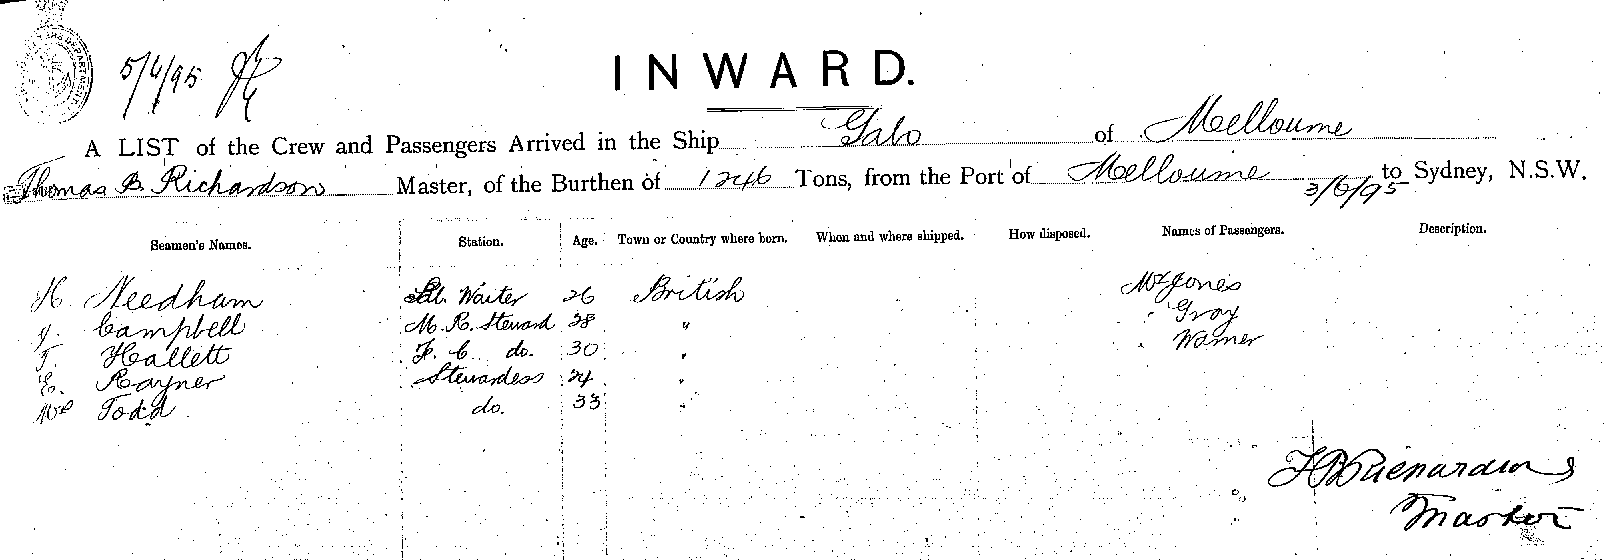 5/6/95
INWARD.
A LIST of the Crew and Passengers Arrived in the Ship Gabo of Melbourne
Thomas B. Richardson Master, of the Burthen of 1246 Tons, from the Port of Melbourne 3/6/95 to Sydney, N.S.W.
Seamen's Names. Station. Age. Town or Country where born. When and where shipped. How disposed. Names of Passengers. Description.
H Needham Waiter 26 British Mr Jones
J. Campbell M. R. Steward 28 " " Gray
T. Hallett F. C. do. 30 " " Warner
E. Rayner Stewardess 24 "
Todd do. 33 "
T B Richardson
Master